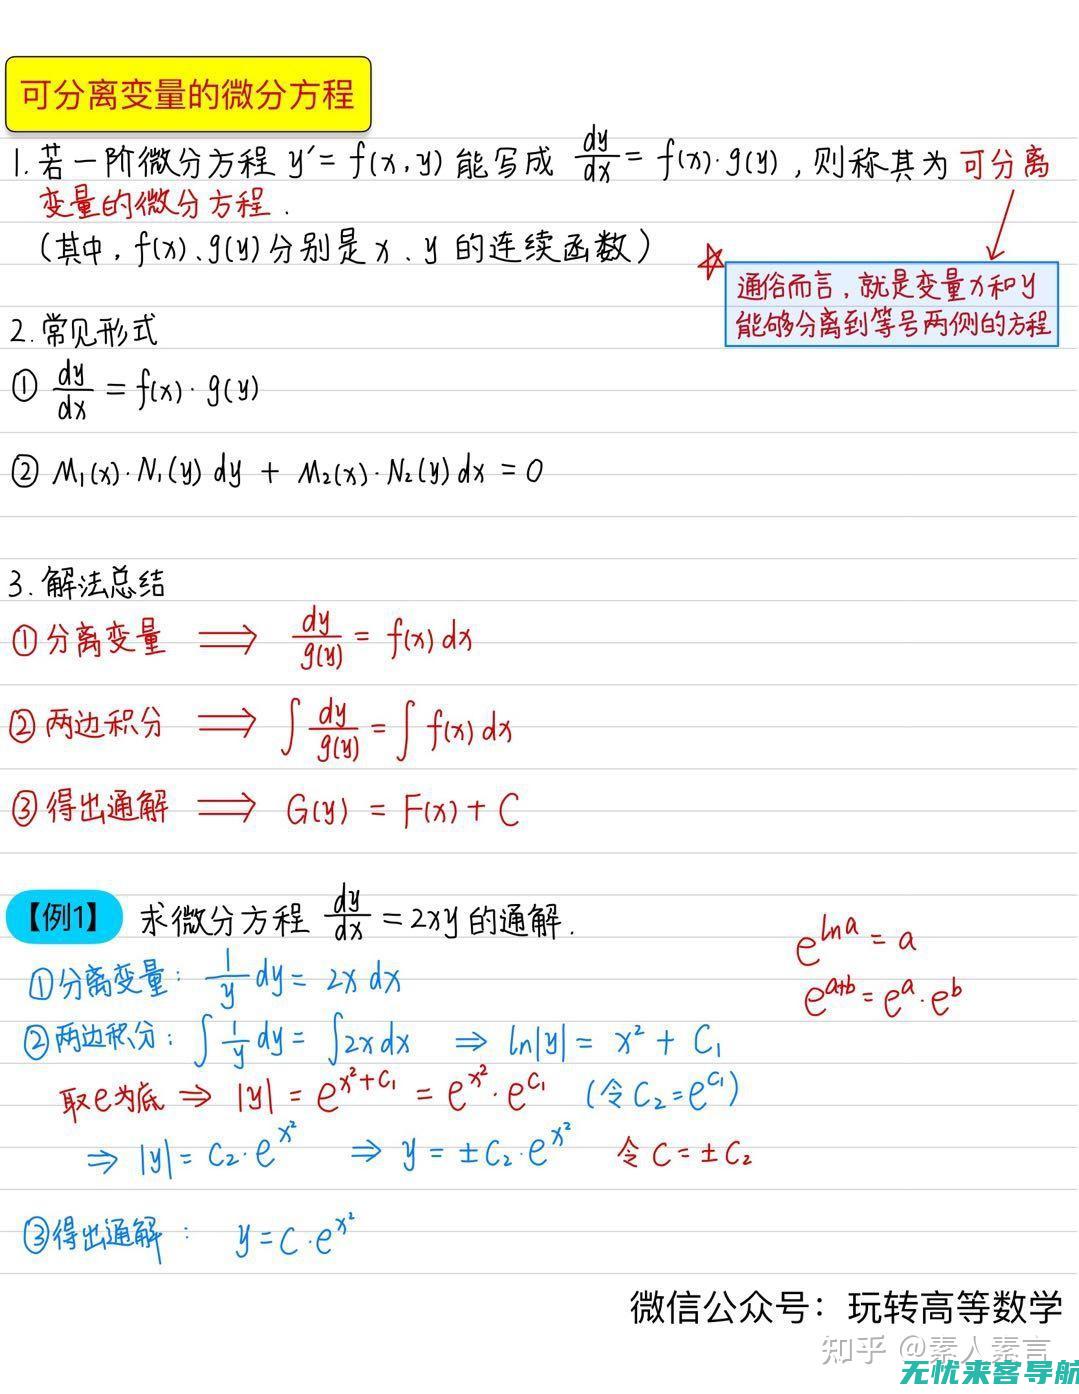 可分离变量的微分方程
1. 若一阶微分方程 y′= f(x,y) 能写成 dy/dx = f(x)·g(y), 则称其为 可分离
变量的微分方程.
(其中, f(x)、g(y)分别是 x、y 的连续函数)
通俗而言, 就是变量x和y
能够分离到等号两侧的方程
2. 常见形式
① dy/dx = f(x)·g(y)
② M₁(x)·N₁(y) dy + M₂(x)·N₂(y) dx = 0
3. 解法总结
① 分离变量 ⟹ dy/g(y) = f(x) dx
② 两边积分 ⟹ ∫ dy/g(y) = ∫ f(x) dx
③ 得出通解 ⟹ G(y) = F(x) + C
【例1】 求微分方程 dy/dx = 2xy 的通解.
e^(lna) = a
e^(a+b) = e^a · e^b
①分离变量: 1/y dy = 2x dx
②两边积分: ∫ 1/y dy = ∫2x dx ⇒ ln|y| = x² + C₁
取e为底 ⇒ |y| = e^(x²+C₁) = e^(x²)·e^(C₁) (令 C₂ = e^(C₁))
⇒ |y| = C₂·e^(x²) ⇒ y = ±C₂·e^(x²) 令 C = ±C₂
③得出通解: y = C·e^(x²)
微信公众号：玩转高等数学
知乎 @素人素言
无忧来客导航